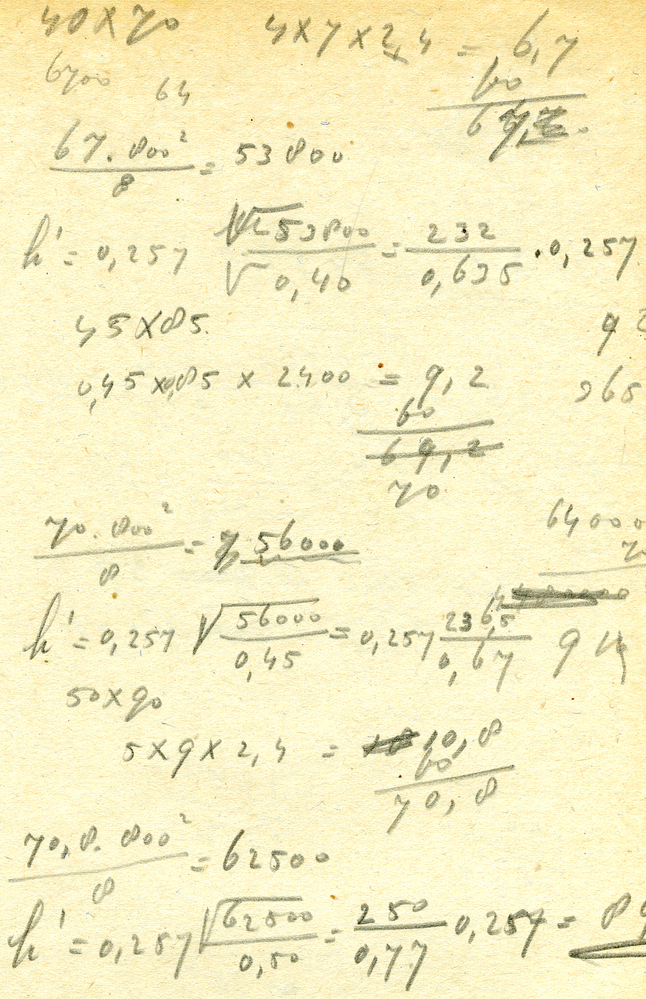 40 x 70 4 x 7 x 2,4 = 6,7
6700 64 60
67.800² / 8 = 53800
h' = 0,257 √53800 / √0,40 = 232 / 0,635 . 0,257
45 x 85
0,45 x 0,85 x 2400 = 9,2
60
69,2
70
70.800² / 8 = 56000
64000
h' = 0,257 √56000 / 0,45 = 0,257 236,5 / 0,67
50 x 90
5 x 9 x 2,4 = 10,8
60
70,8
70,8.800² / 8 = 62500
h' = 0,257 √62500 / 0,50 = 250 / 0,77 0,257 =